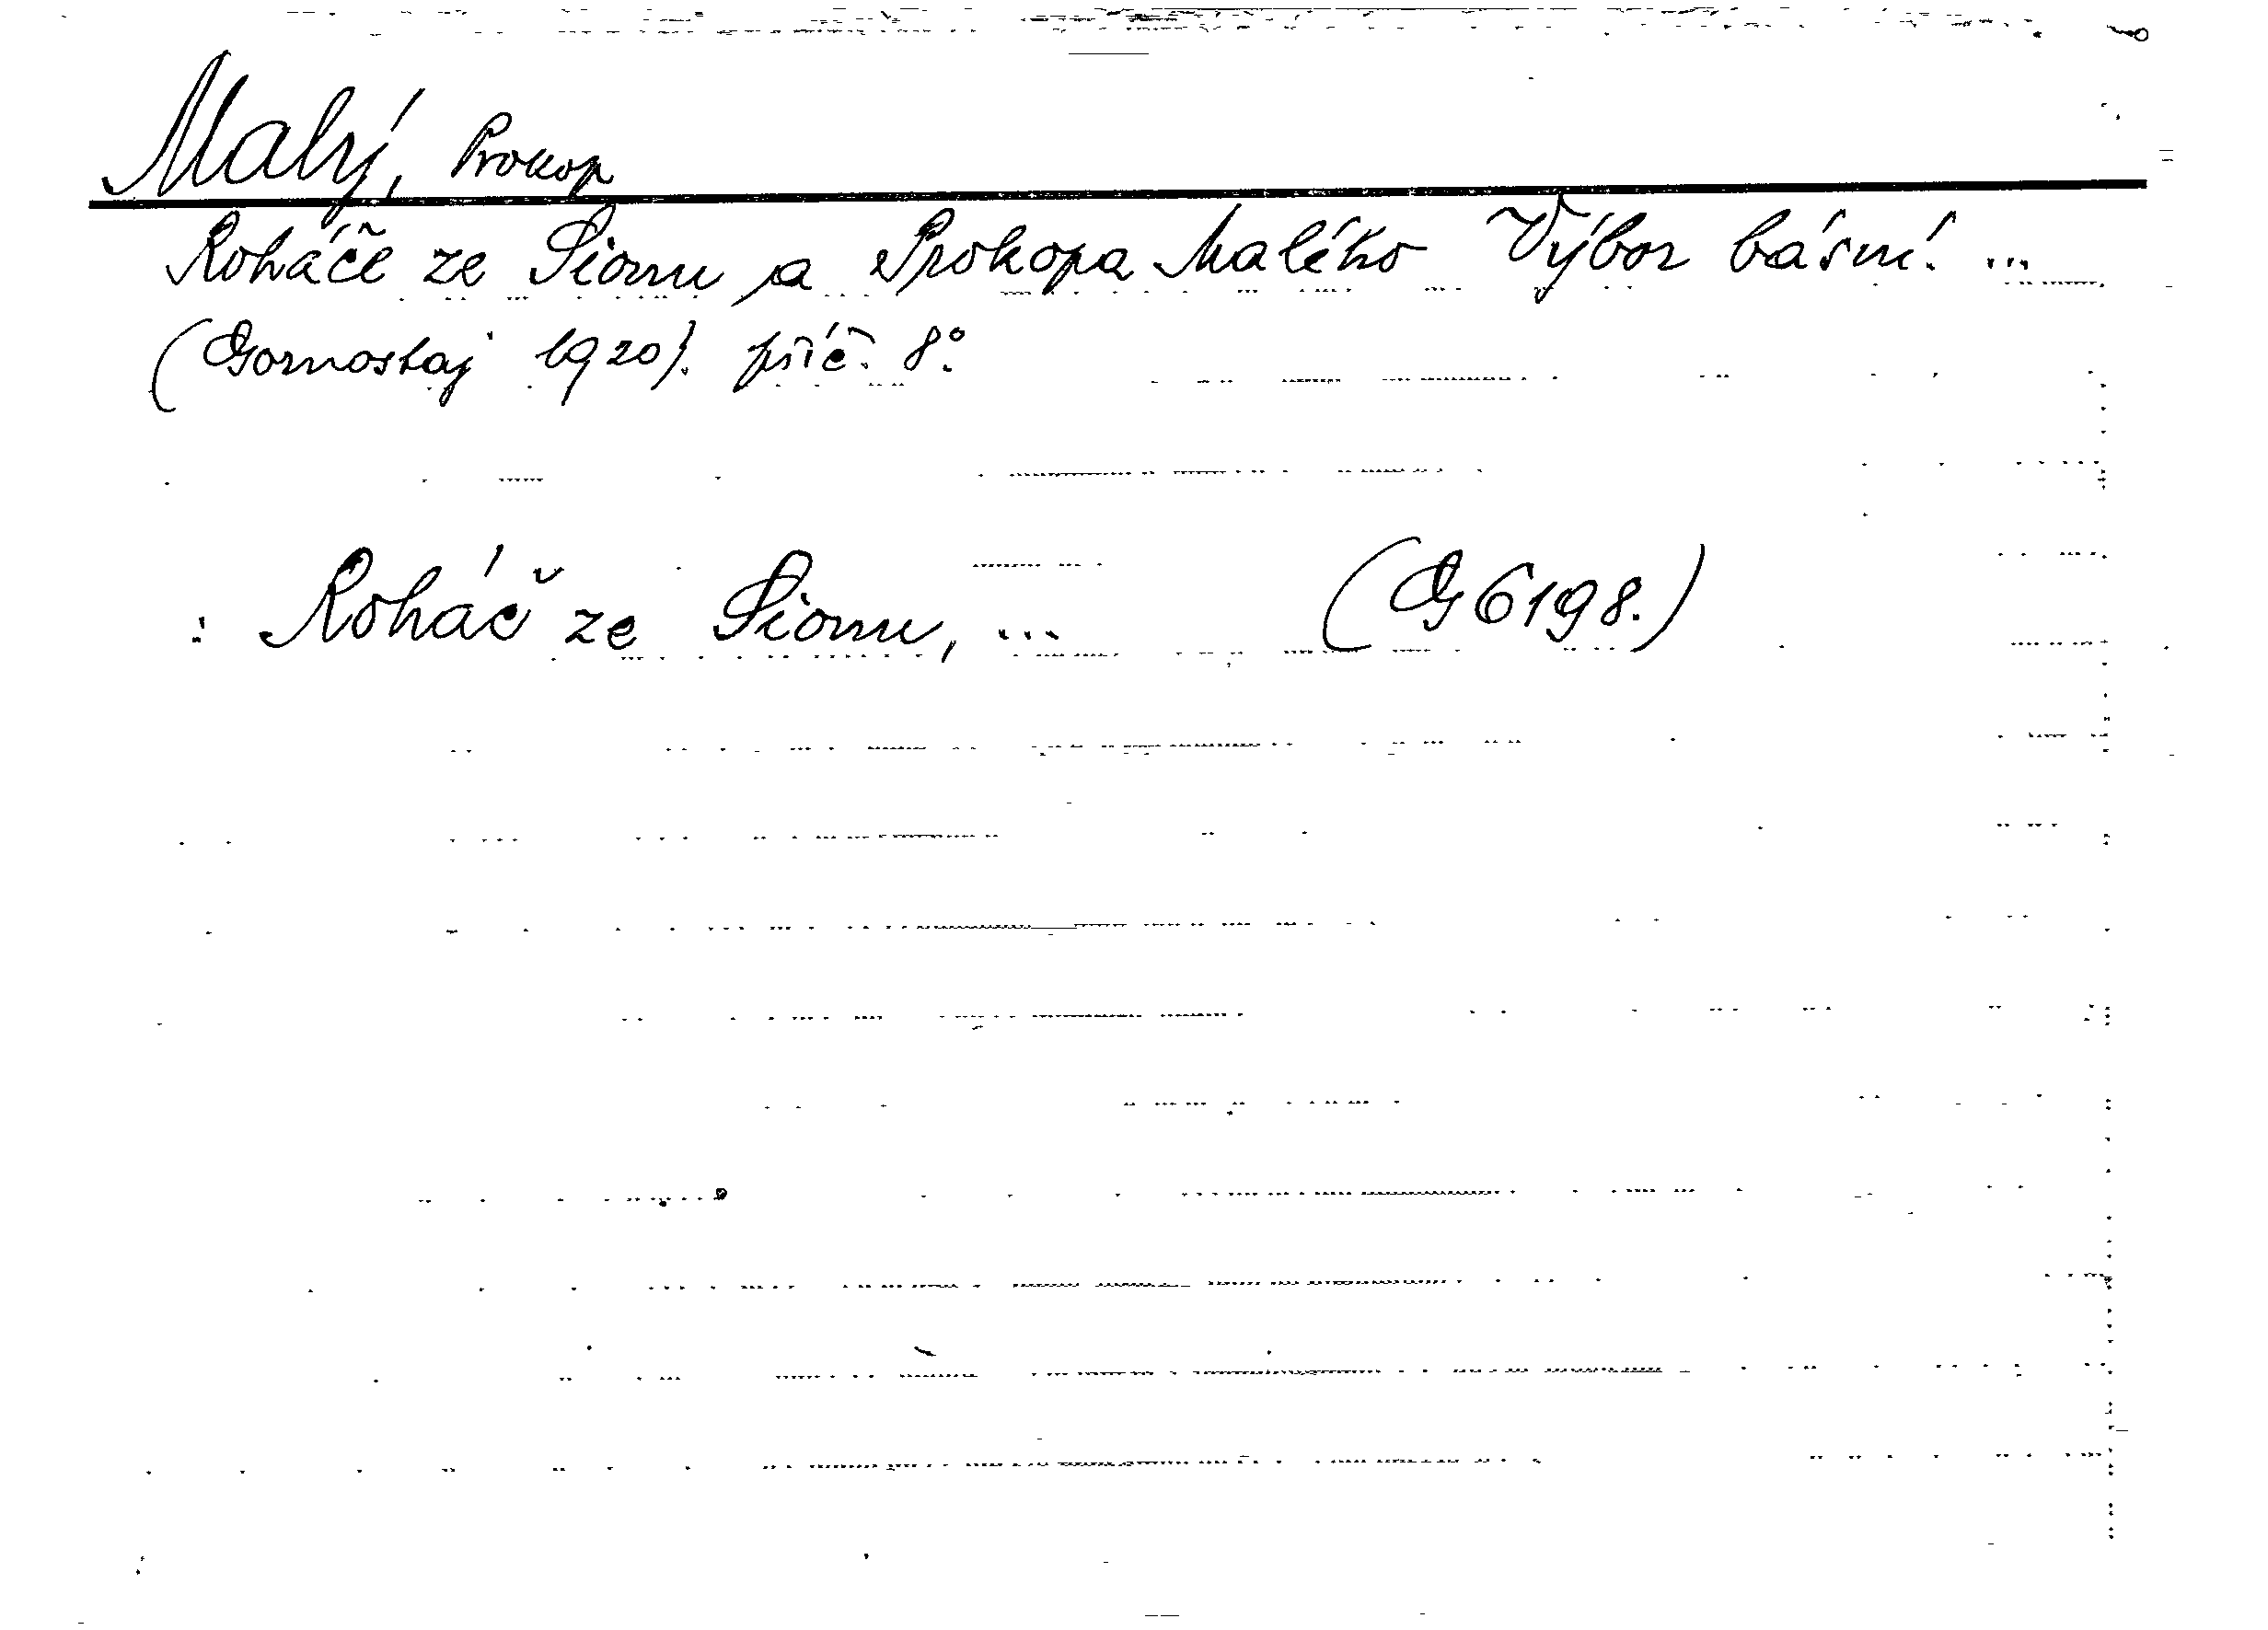 Malý, Prokop
Roháče ze Sionu a Prokopa Malého Výbor básní. ...
(Gornostaj 1920). příč. 8°.
: Roháč ze Sionu, ... (G 6198.)